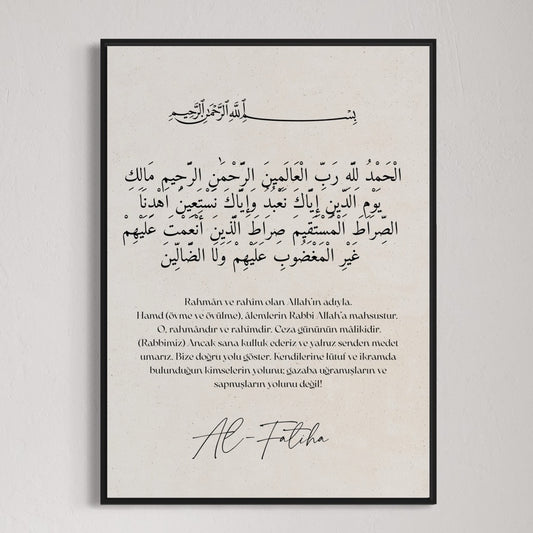 بِسْمِ اللَّهِ الرَّحْمَٰنِ الرَّحِيمِ
الْحَمْدُ لِلَّهِ رَبِّ الْعَالَمِينَ الرَّحْمَٰنِ الرَّحِيمِ مَالِكِ
يَوْمِ الدِّينِ إِيَّاكَ نَعْبُدُ وَإِيَّاكَ نَسْتَعِينُ اهْدِنَا
الصِّرَاطَ الْمُسْتَقِيمَ صِرَاطَ الَّذِينَ أَنْعَمْتَ عَلَيْهِمْ
غَيْرِ الْمَغْضُوبِ عَلَيْهِمْ وَلَا الضَّالِّينَ
Rahmân ve rahîm olan Allah'ın adıyla.
Hamd (övme ve övülme), âlemlerin Rabbi Allah'a mahsustur.
O, rahmândır ve rahîmdir. Ceza gününün mâlikidir.
(Rabbimiz) Ancak sana kulluk ederiz ve yalnız senden medet
umarız. Bize doğru yolu göster. Kendilerine lütuf ve ikramda
bulunduğun kimselerin yolunu; gazaba uğramışların ve
sapmışların yolunu değil!
Al-Fatiha